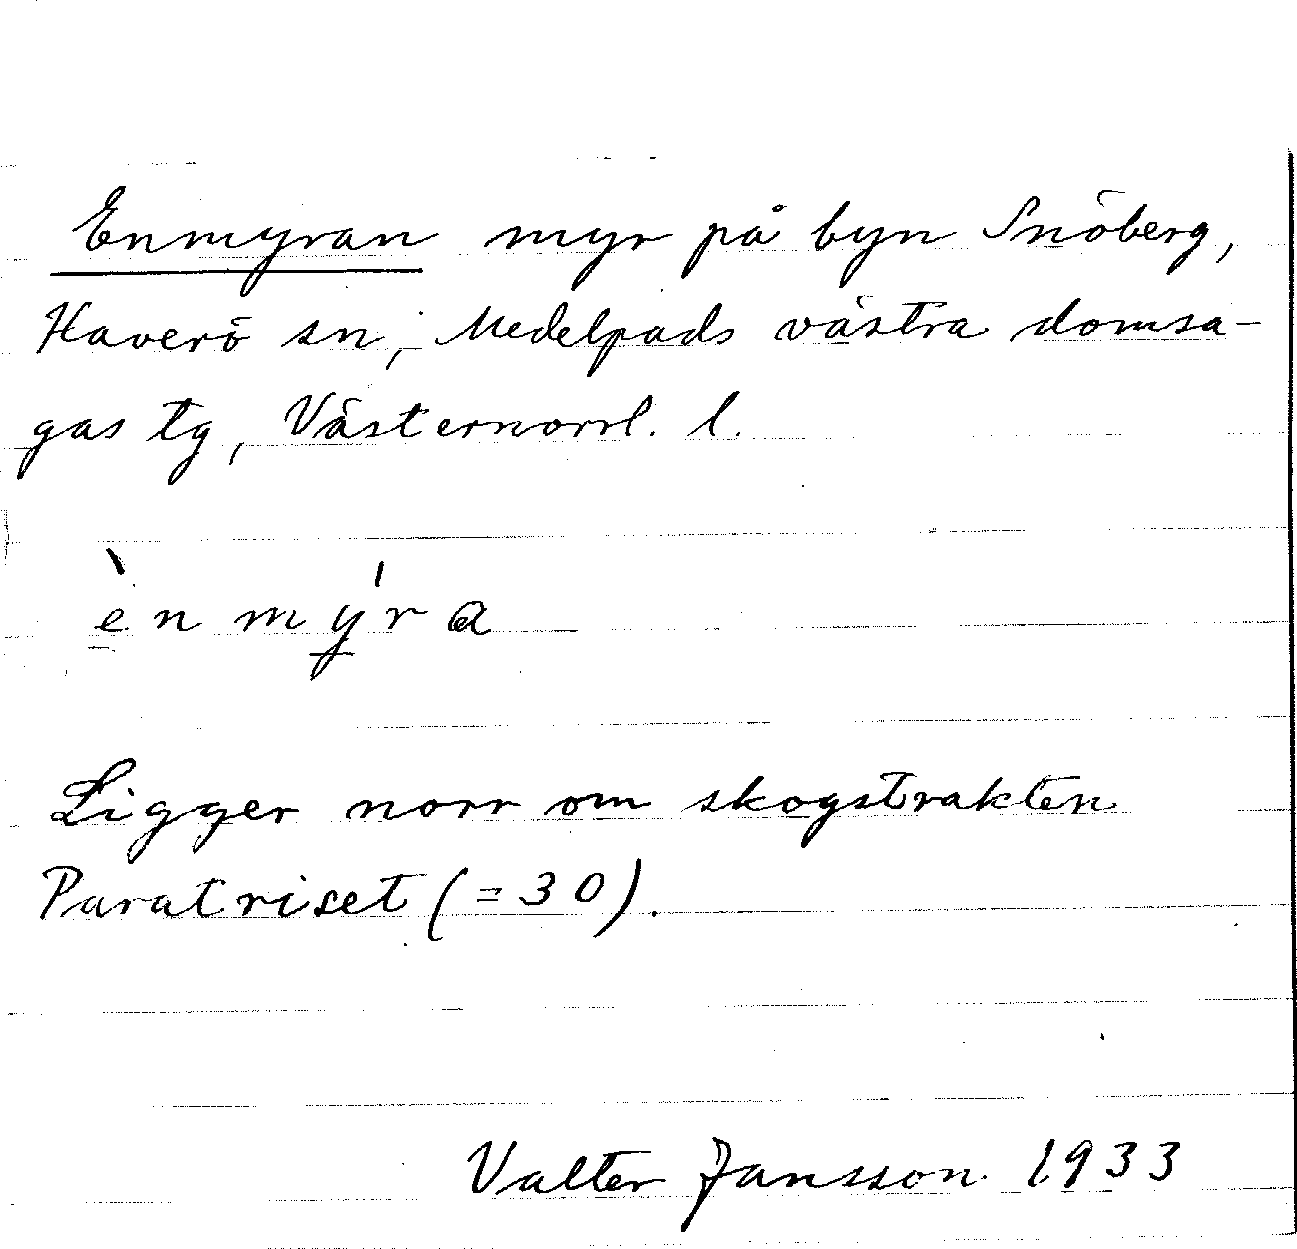 Enmyran myr på byn Snöberg,
Haverö sn, Medelpads västra domsa-
gas tg, Västernorrl. l.
ènmýra
Ligger norr om skogstrakten
Paratriset (=30).
Valter Jansson 1933